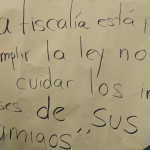 a fiscalía está p
mplir la ley no
cuidar los in
ses de "sus
amigos"